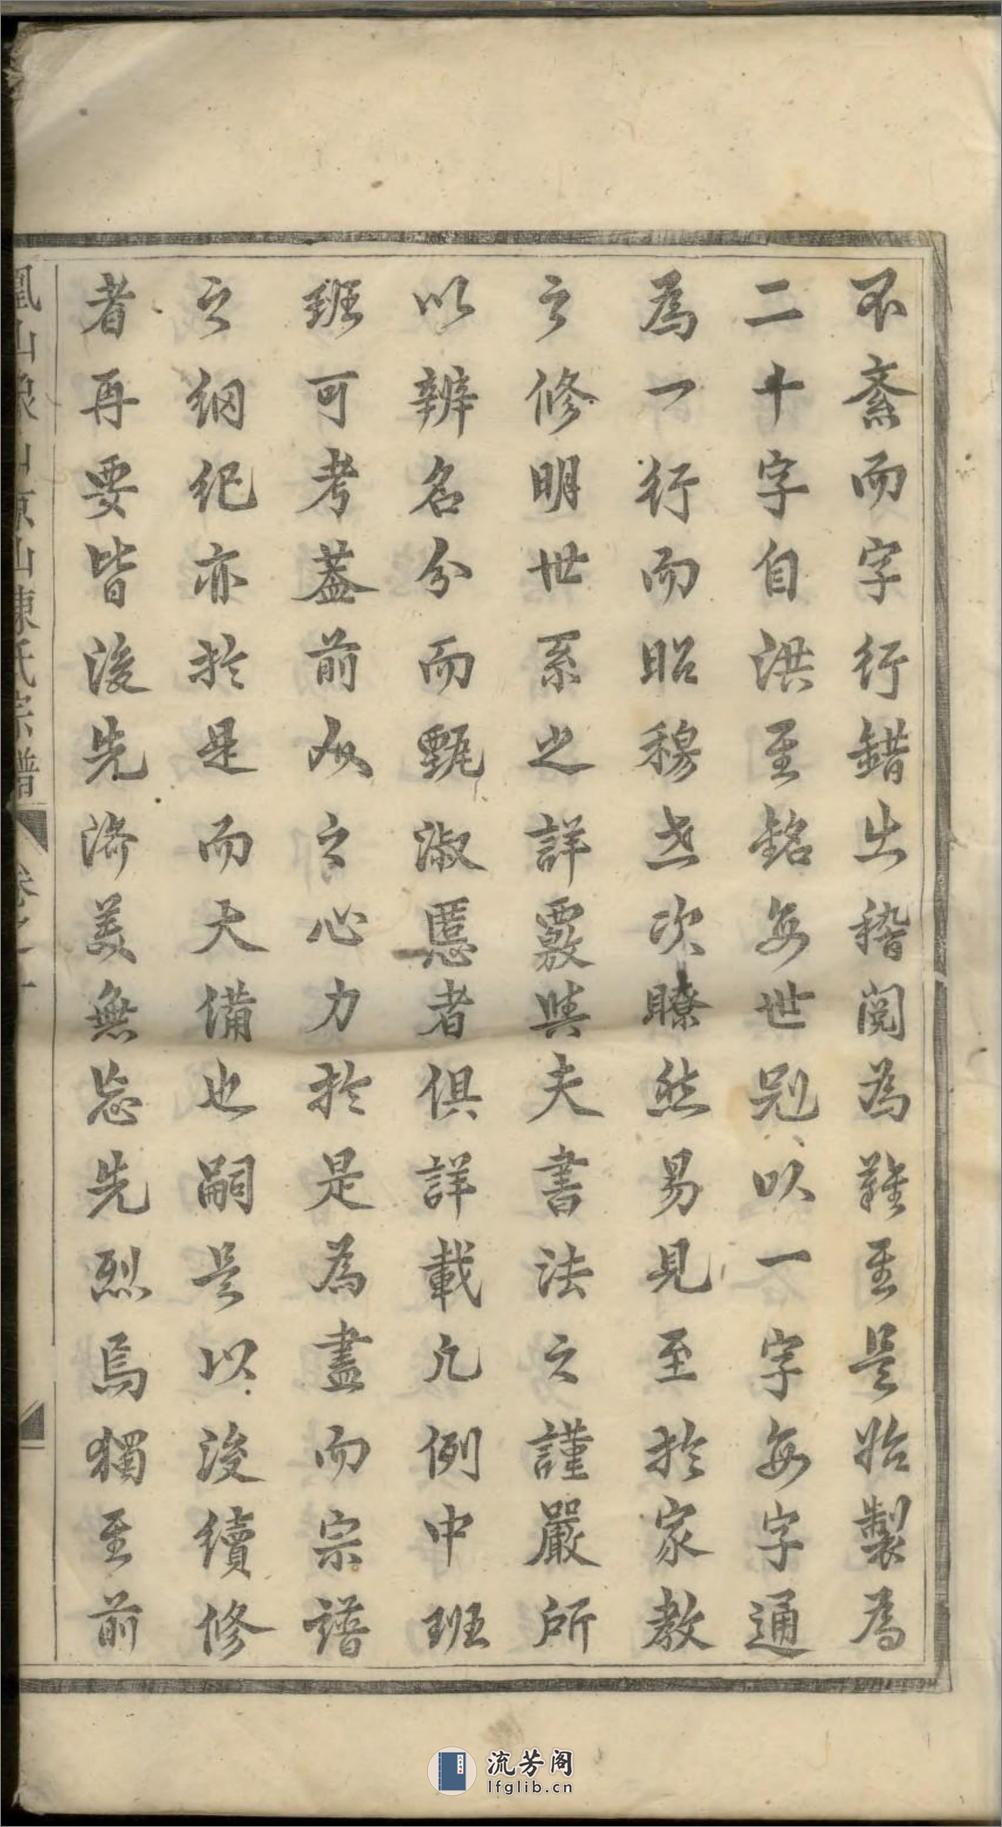 不紊而字行錯出稽閱為難至是始製為
二十字自洪至銘每世別以一字每字通
為一行而昭穆世次瞭然易見至於家教
之修明世系之詳覈與夫書法之謹嚴所
以辨名分而甄淑慝者俱詳載凡例中班
班可考蓋前人之心力於是為盡而宗譜
之綱紀亦於是而大備也嗣是以後續修
者再要皆後先濟美無忘先烈焉獨至前
山陳氏宗譜
卷之一
流芳阁
lfglib.cn